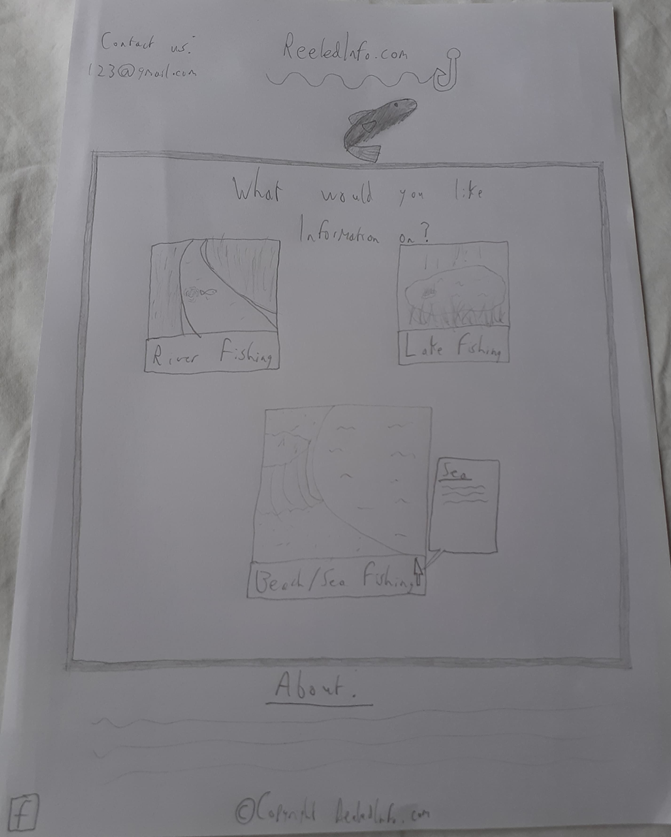 Contact us:
123@gmail.com
ReeledInfo.com
What would you like
Information on?
River Fishing
Lake Fishing
Sea
Beach/Sea Fishing
About.
f
©Copyright ReeledInfo.com